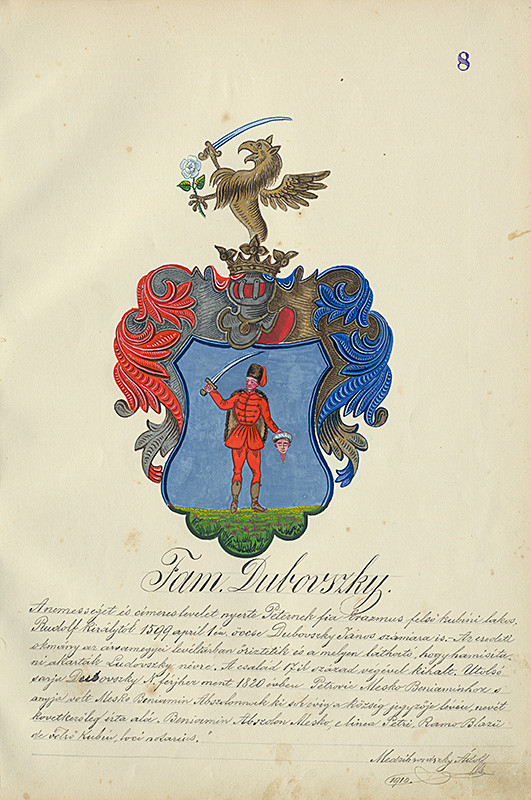 8
Fam. Dubovszky.
A nemességet és címereslevelet nyerte Péternek fia Erazmus felső kubini lakos,
Rudolf Királytól 1599 april 1én öcscse Dubovszky János számára is. - Az eredeti
okmány az árvamegyei levéltárban őriztetik és a melyen látható, hogy hamisíta-
ni akarták Ludovszky névre. A család 17ik század végével kihalt. Utolsó
sarja Dubovszky N. férjhez ment 1820 évben Petrovic Mesko Beniaminhoz s
anyja volt Mesko Beniamin Abszolonnak ki sok évig a község jegyzője lévén, nevét
következőleg írta alá: Beniamin Abszolon Mesko, e linea Petri, Ramo Blazii
de Felső Kubin, loci notarius."
Medzihradszky Adolf
1912.